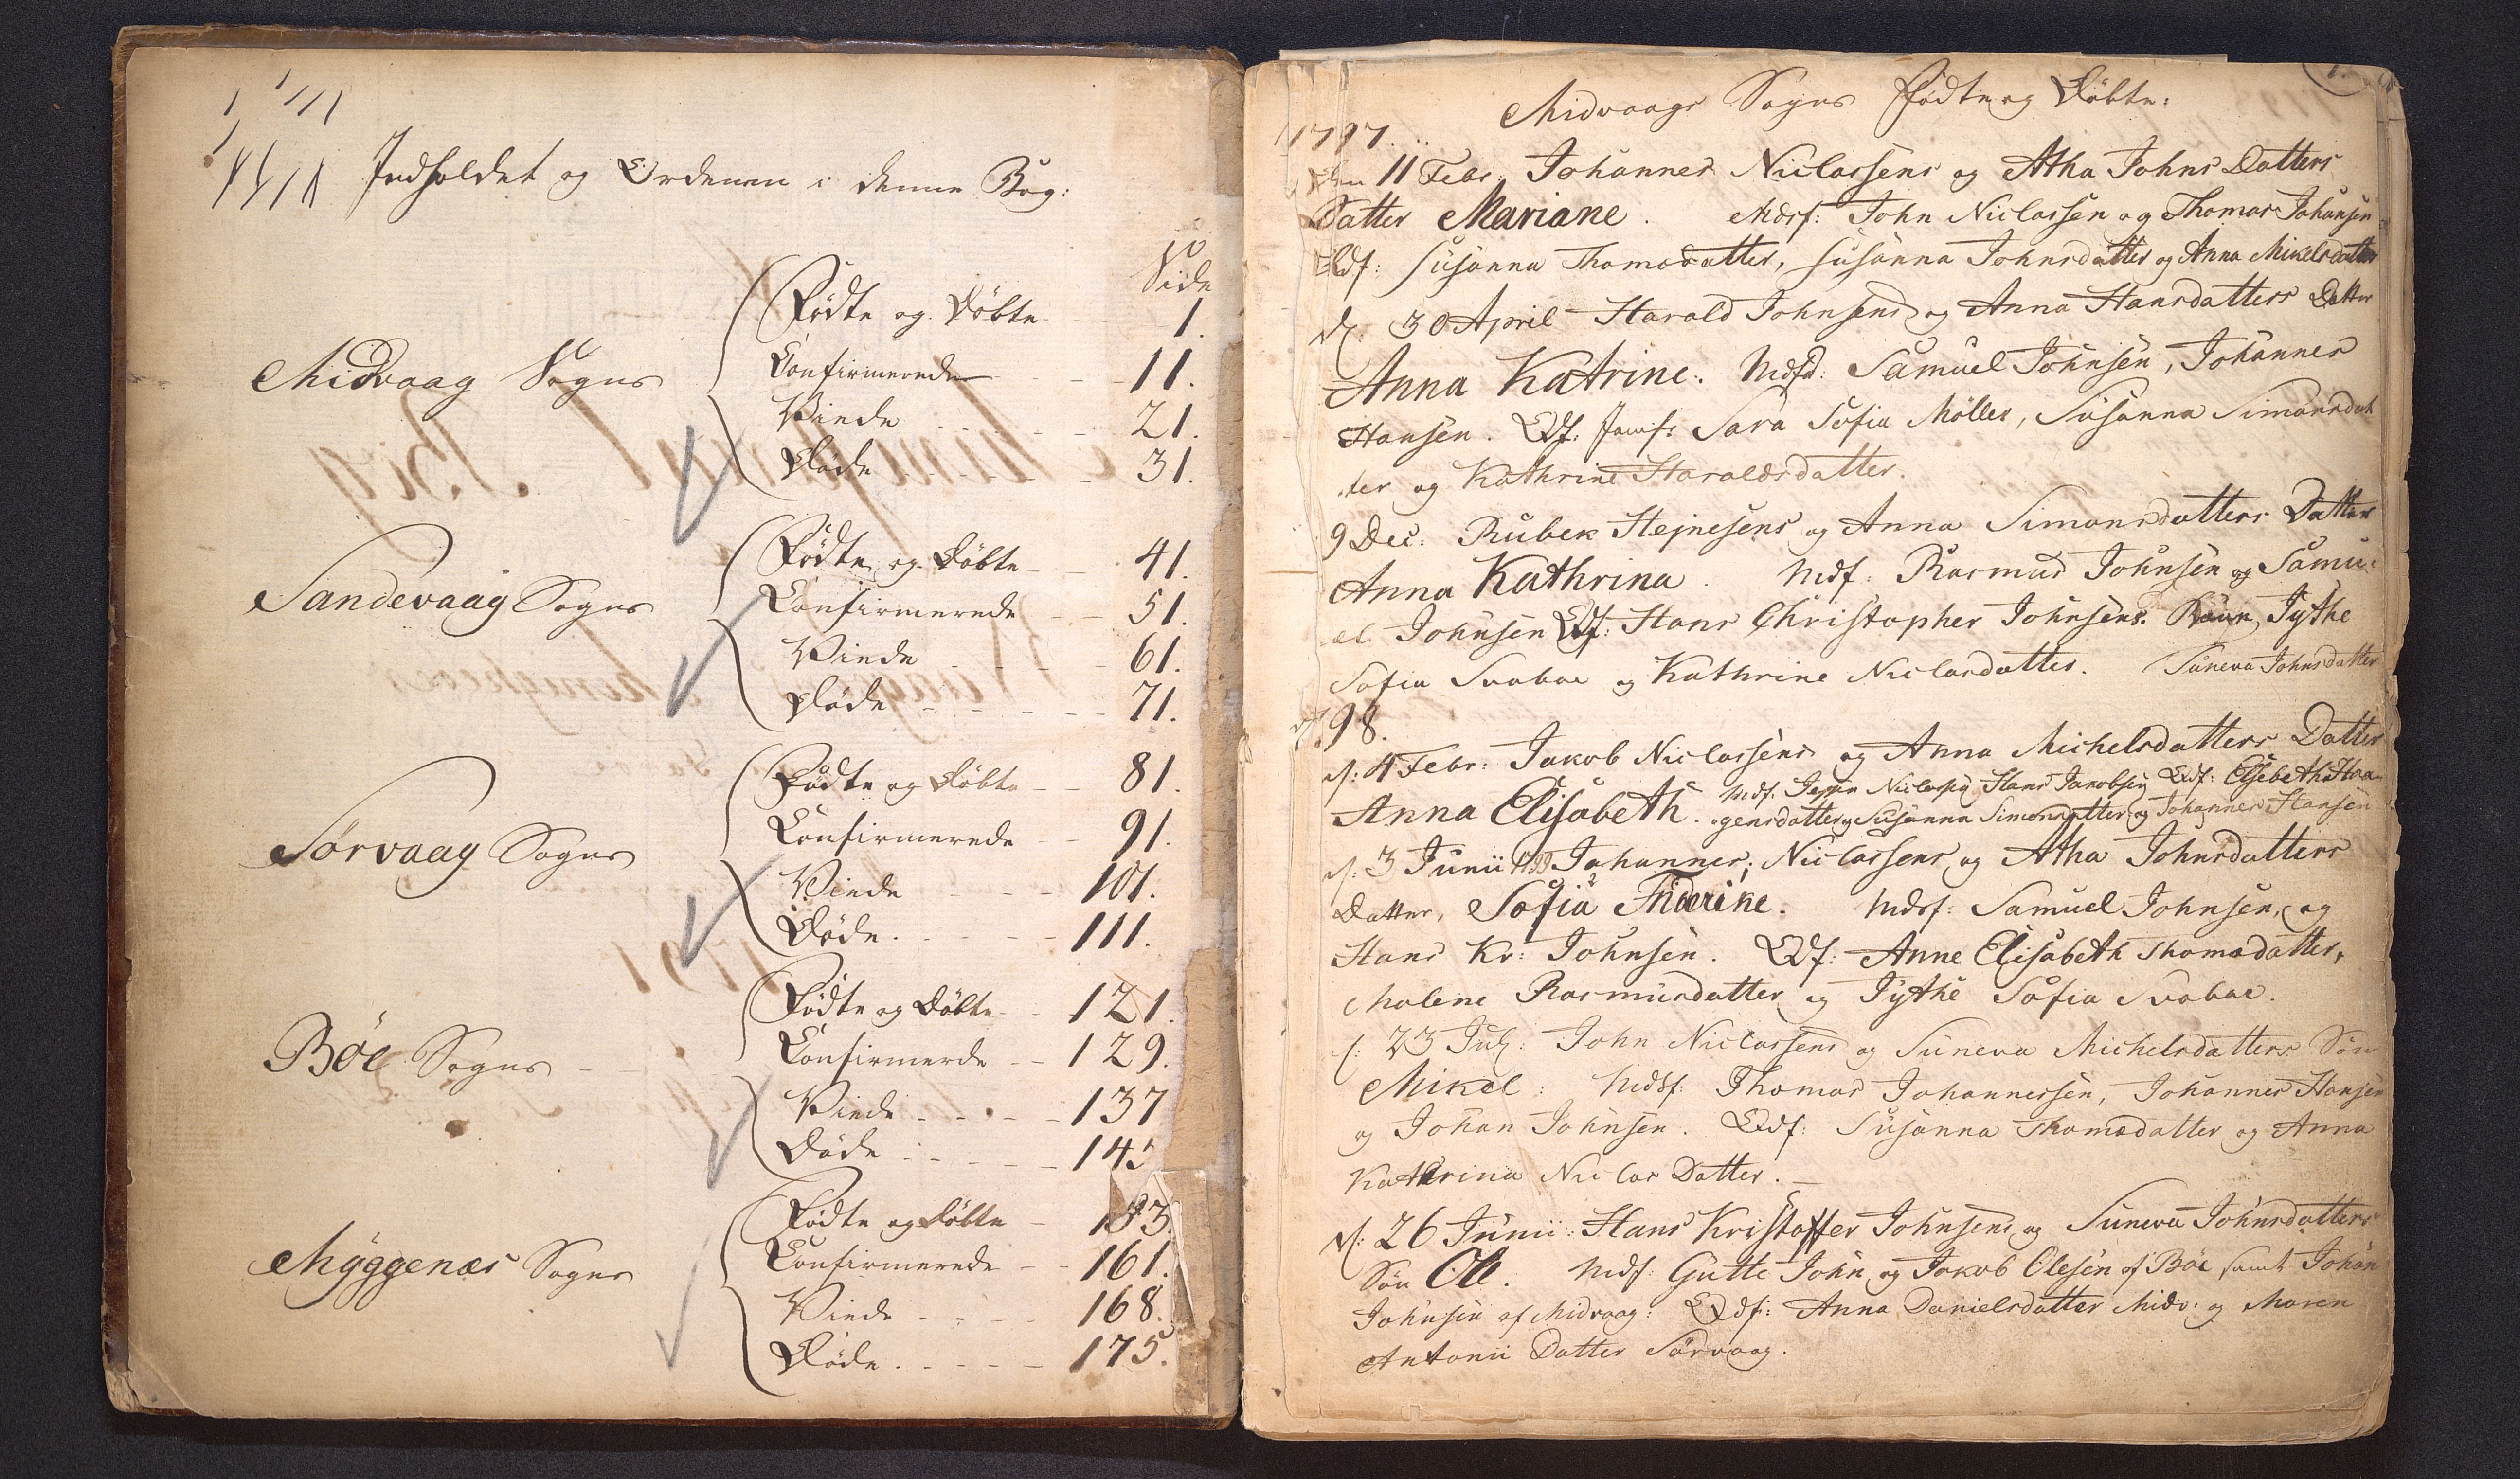 Indholdet og Ordenen i denne Bog:
Side
Midvaag Sogns
Fødte og Døbte 1.
Confirmerede 11.
Viede 21.
Døde 31.
Sandevaag Sogns
Fødte og Døbte 41.
Confirmerede 51.
Viede 61.
Døde 71.
Sørvaag Sogns
Fødte og Døbte 81.
Confirmerede 91.
Viede 101.
Døde 111.
Böe Sogns
Fødte og Døbte 121.
Confirmerde 129.
Viede 137
Døde 145
Myggenæs Sogns
Fødte og Døbte
Confirmerede 161.
Viede 168.
Døde 175.
1.
Midvaags Sogns Fødte og Döbte:
1797.
Den 11 Febr. Johannes Niclassens og Atha Johns Datters
Datter Mariane. Mdsf: John Niclassen og Thomas Johansen
Qdf: Susanna Thomædatter, Susanna Johnsdatter og Anna Mikelsdatter
d. 30 April Harald Johnsens og Anna Hansdatters Datter
Anna Katrine. Mdsf: Samuel Johnsen, Johannes
Hansen. Qdf: Jomf: Sara Sofia Möller, Susanna Simonsdat
ter og Kathrine Haraldsdatter.
9 Dec: Rubek Hejnesens og Anna Simonsdatters Datter
Anna Kathrina. Mdf: Rasmus Johnsen og Samu-
el Johnsen Qdf: Hans Christopher Johnsens Jythe
Sofia Svabae og Kathrine Niclasdatter. Suneva Johnsdatter
98.
d: 4 Febr: Jakob Niclassens og Anna Michelsdatters Datter
Anna Elisabeth. Mdf: Niclassen Hans Jakobsen Qdf: Elsebeth Haa-
gensdatter og Susanna Simonsdatter og Johannes Hansen
d: 3 Junii 1799 Johannes Niclassens og Atha Johnsdatters
Datter, Sofia Friderike. Mdsf: Samuel Johnsen, og
Hans Kr: Johnsen. Qdf: Anne Elisabeth Thomædatter,
Malene Rasmusdatter og Jythe Sofia Svabae.
d: 23 Julj: John Niclassens og Suneva Michelsdatters Søn
Mikel: Mdsf: Thomas Johannessen, Johannes Hansen
og Johan Johnsen. Qdf: Susanna Thomædatter og Anna
Kathrina Niclas Datter.
d: 26 Junii: Hans Kristoffer Johnsens og Suneva Johnsdatters
Søn Ole. Mdf: Gutte John og Jakob Olesen af Böe samt Johan
Johnsen af Midvaag: Qdf: Anna Danielsdatter Midv: og Maren
Antonii Datter Sörvaag.